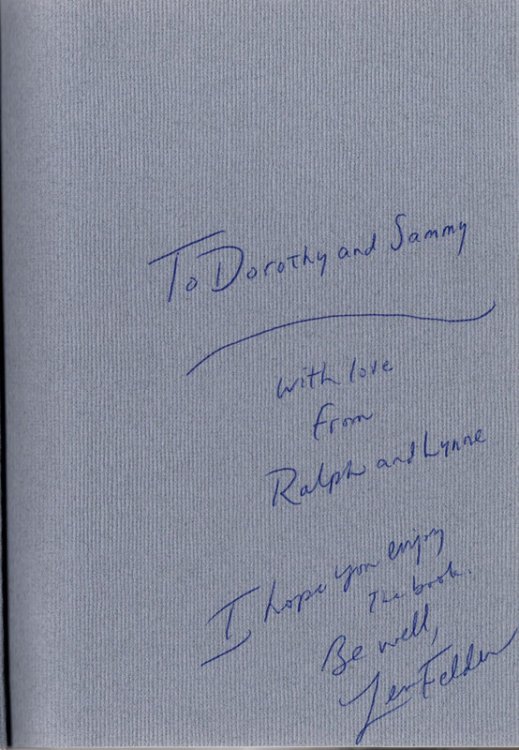 To Dorothy and Sammy
with love
from
Ralph and Lynne
I hope you enjoy
The book.
Be well,
Len Felder